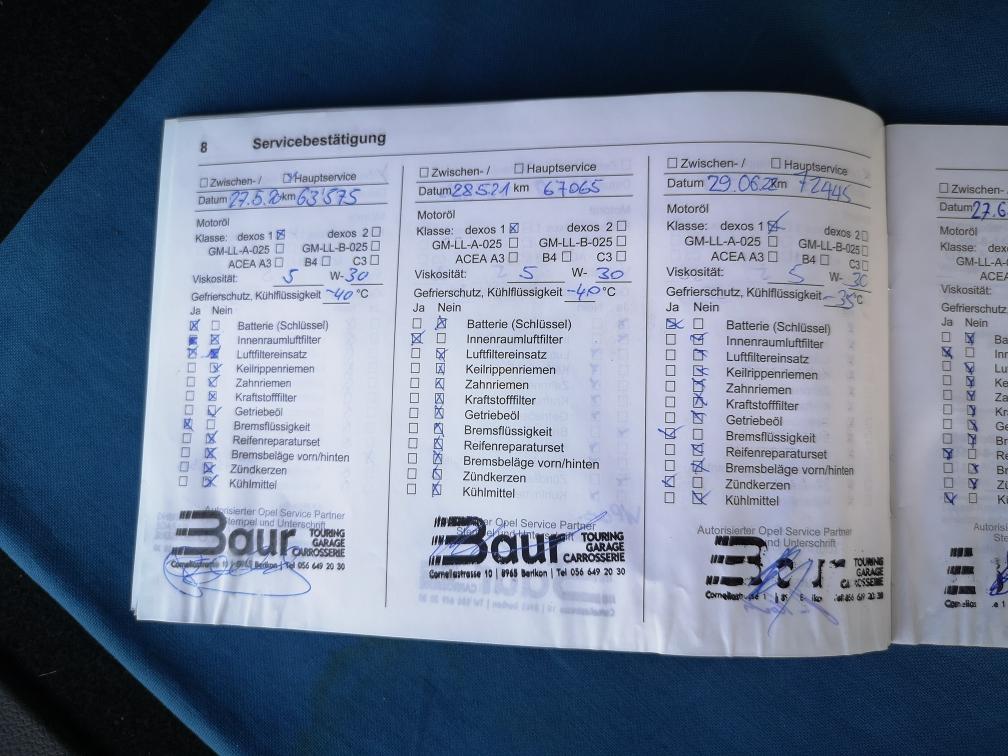 8 Servicebestätigung
☐ Zwischen- / ☒ Hauptservice
Datum 27.5.20 km 63'575
Motoröl
Klasse: dexos 1 ☒ dexos 2 ☐
GM-LL-A-025 ☐ GM-LL-B-025 ☐
ACEA A3 ☐ B4 ☐ C3 ☐
Viskosität: 5 W-30
Gefrierschutz, Kühlflüssigkeit -40 °C
Ja Nein
☒ ☐ Batterie (Schlüssel)
☒ ☒ Innenraumluftfilter
☒ ☒ Luftfiltereinsatz
☐ ☒ Keilrippenriemen
☐ ☒ Zahnriemen
☐ ☒ Kraftstofffilter
☐ ☒ Getriebeöl
☒ ☐ Bremsflüssigkeit
☐ ☒ Reifenreparaturset
☐ ☒ Bremsbeläge vorn/hinten
☐ ☒ Zündkerzen
☐ ☒ Kühlmittel
Autorisierter Opel Service Partner
Stempel und Unterschrift
Baur TOURING
GARAGE
CARROSSERIE
Corneliastrasse 10 | 8965 Berikon | Tel 056 649 20 30
☐ Zwischen- / ☐ Hauptservice
Datum 28.5.21 km 67065
Motoröl
Klasse: dexos 1 ☒ dexos 2 ☐
GM-LL-A-025 ☐ GM-LL-B-025 ☐
ACEA A3 ☐ B4 ☐ C3 ☐
Viskosität: 5 W- 30
Gefrierschutz, Kühlflüssigkeit -40 °C
Ja Nein
☐ ☒ Batterie (Schlüssel)
☒ ☐ Innenraumluftfilter
☐ ☒ Luftfiltereinsatz
☐ ☒ Keilrippenriemen
☐ ☒ Zahnriemen
☐ ☒ Kraftstofffilter
☐ ☒ Getriebeöl
☐ ☒ Bremsflüssigkeit
☐ ☒ Reifenreparaturset
☐ ☒ Bremsbeläge vorn/hinten
☐ ☒ Zündkerzen
☐ ☒ Kühlmittel
Opel Service Partner
Baur TOURING
GARAGE
CARROSSERIE
Corneliastrasse 10 | 8965 Berikon | Tel 056 649 20 30
☐ Zwischen- / ☐ Hauptservice
Datum 29.06.22 km 72445
Motoröl
Klasse: dexos 1 ☒ dexos 2 ☐
GM-LL-A-025 ☐ GM-LL-B-025 ☐
ACEA A3 ☐ B4 ☐ C3 ☐
Viskosität: 5 W- 30
Gefrierschutz, Kühlflüssigkeit -35 °C
Ja Nein
☒ ☐ Batterie (Schlüssel)
☐ ☒ Innenraumluftfilter
☐ ☒ Luftfiltereinsatz
☐ ☒ Keilrippenriemen
☐ ☒ Zahnriemen
☐ ☒ Kraftstofffilter
☐ ☒ Getriebeöl
☒ ☐ Bremsflüssigkeit
☐ ☒ Reifenreparaturset
☐ ☒ Bremsbeläge vorn/hinten
☒ ☐ Zündkerzen
☐ ☒ Kühlmittel
Autorisierter Opel Service Partner
Unterschrift
TOURING
GARAGE
CARROSSERIE
649 20 30
☐ Zwischen- /
Datum 27.6
Motoröl
Klasse:
GM-LL-A
ACEA
Viskosität:
Gefrierschutz
Ja Nein